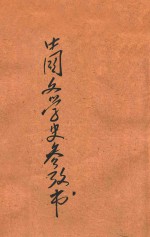 中国文学史参考书